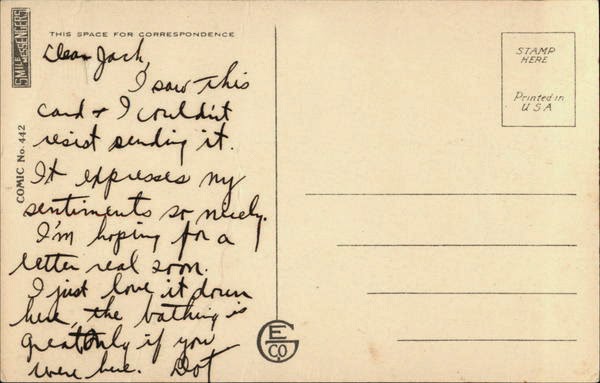 SMILE MESSENGERS
COMIC No. 442
THIS SPACE FOR CORRESPONDENCE
Dear Jack,
I saw this
card & I couldn't
resist sending it.
It expresses my
sentiments so nicely.
I'm hoping for a
letter real soon.
I just love it down
here, the bathing is
great Only if you
were here. Dot
STAMP
HERE
Printed in
U S A
E
G
CO